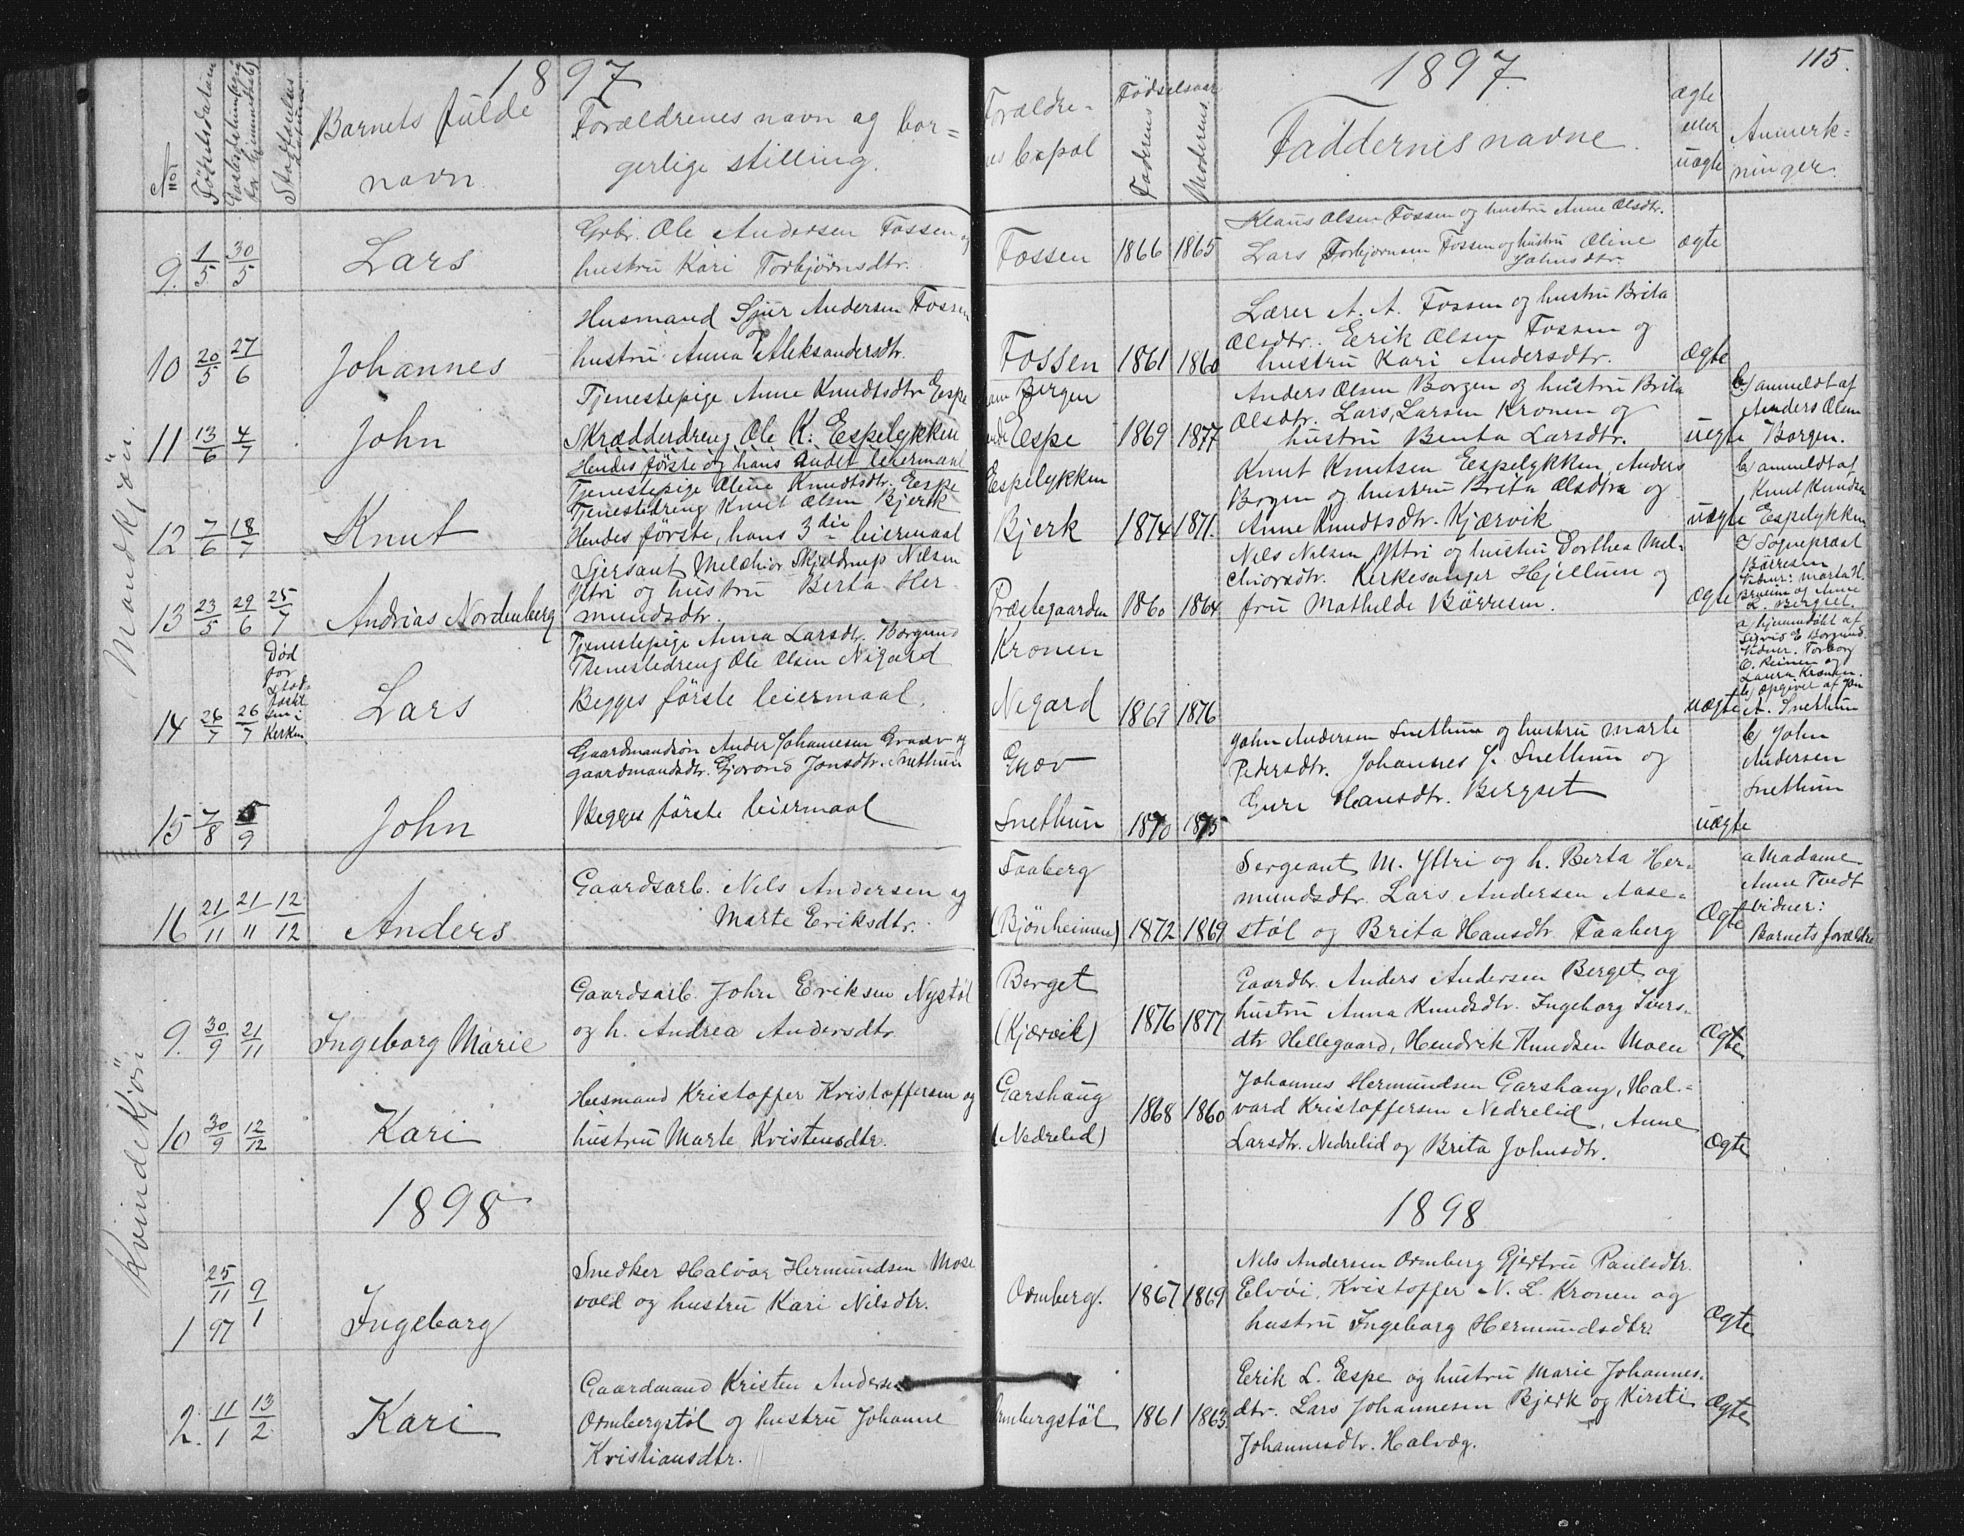 1897
1897.
115.
No
Fødselsdatum
Stadfæstelses
Barnets fulde
navn.
Forældrenes navn og bor-
gerlige stilling.
Fødselsaar
Faderens
Moderens
Faddernes navne.
ægte
eller
uægte
Anmerk-
ninger.
Mandkjön.
9. 1/5 30/5
Lars
Grbr. Ole Andersen Fossen og
hustru Kari Torbjörnsdtr.
Fossen 1866 1865
Klaus Olsen Fossen og hustru Anne Olsdtr.
Lars Torbjørnsen Fossen og hustru Oline
Johnsdtr.
ægte
10 20/5 27/6
Johannes
Husmand Sjur Andersen Fossen
hustru Anna Aleksandersdtr.
Fossen 1861 1860
Lærer A. A. Fossen og hustru Brita
Olsdtr. Eerik Olsen Fossen og
hustru Kari Andersdtr.
Ægte
11 13/6 4/7
John
Tjenestepige Anne Knudtsdtr Espe
Skrædderdreng Ole K. Espelykken
Hendes første og hans andet leiermaal
Borgen
Espe 1869 1877
Anders Olsen Borgen og hustru Brita
Olsdtr. Lars Larsen Kronen og
hustru Benta Larsdtr.
uegte
b) anmeldt af
Anders Olsen
Borgen.
12 7/6 18/7
Knut
Tjenestepige Oline Knudtsdtr. Espe
Tjenestedreng Knut Olsen Bjerk
Hendes første, hans 3die leiermaal
Espelykken
Bjerk 1874 1871.
Knut Knutsen Espelykken, Anders
Borgen og hustru Brita Olsdtra og
Anne Knudtsdtr. Kjærvik
uægte
b) anmeldt af
Knut Knudsen
Espelykken
13 23/5 29/6 25/7
Andrias Nordenberg
Sjersant Melchior Skjeldrup Nilsen
Yttri og hustru Berta Her-
mundsdtr.
Præstegaarden 1860 1864
Nils Nilsen Yttri og hustru Dorthea Mel-
chiorsdtr. Kirkesanger Hjellum og
fru Mathilde Börresen.
Ægte
Sognepræst
Börresen
Vidner: Marta H.
Bruum og Anne
L. Bergset.
14 26/7 26/7
Død
før
Stad-
fæstel-
sen i
Kerken
Lars
Tjenestepige Anna Larsdtr. Borgund
Tjenestedreng Ole Olsen Nigard
Begges første leiermaal.
Kronen
Negard 1869 1876
uægte
a) hjemmedøbt af
Sigrid E Borgund.
Vidner. Torborg
O. Reinen og
Laura Kronen.
b) opgivet af John
A. Snethun
15 7/8 5/9
John
Gaardmandsön Anders Johannesen Græv og
gaardmandsdtr. Gjorond Jonsdtr. Snethun
Begges förste leiermaal
Græv
Snethun 1870 1875
John Andersen Snethun og hustru Marte
Pedersdtr. Johannes J. Snethun og
Guri Hansdtr. Bergset
uægte
b) John
Andersen
Snethun
16 21/11 21/11 12/12
Anders
Gaardsarb. Nels Andersen og
Marte Eriksdtr.
Faaberg
(Bjönheimen) 1872 1869
Sergeant M. Yttri og h. Berta Her-
mundsdtr. Lars Andersen Aase-
stöl og Brita Hansdtr. Faaberg
Ægte
a Madame
Anne Tvedt
vidner:
Barnets forældre
Kvindekjön
9. 30/9 21/11
Ingeborg Marie
Gaardsarb. John Eriksen Nystöl
og h. Andrea Andersdtr.
Berget
(Kjærvik) 1876 1877
Gaardbr. Anders Andersen Berget og
hustru Anna Knudsdtr. Ingeborg Siurs-
dtr Hillegaard, Hendrik Knudsen Moen
Ægte
10 30/9 12/12
Kari
Husmand Kristoffer Kristoffersen og
hustru Marte Kristensdtr.
Garshaug
(Nedrelid) 1868 1860
Johannes Hermundsen Garshaug, Hal-
vard Kristoffersen Nedrelid, Anne
Larsdtr. Nedrelid og Brita Johnsdtr.
Ægte
1898
1898
1 25/11 97 9/1
Ingeborg
Snedker Halvor Hermundsen Mose
vold og hustru Kari Nilsdtr.
Ormberg. 1867 1869
Nils Andersen Ormberg Gjertru Paulsdtr.
Elvöi, Kristoffer N. L. Kronen og
hustru Ingeborg Hermundsdtr.
Ægte
2. 11/1 13/2
Kari
Gaardmand Kristen Andersen
Ormbergstöl og hustru Johanne
Kristiansdtr.
Ormbergstöl 1861 1863
Eerik L. Espe og hustru Marie Johannes-
dtr. Lars Johannesen Bjerk og Kirsti
Johannesdtr. Halvæg.
Ægte